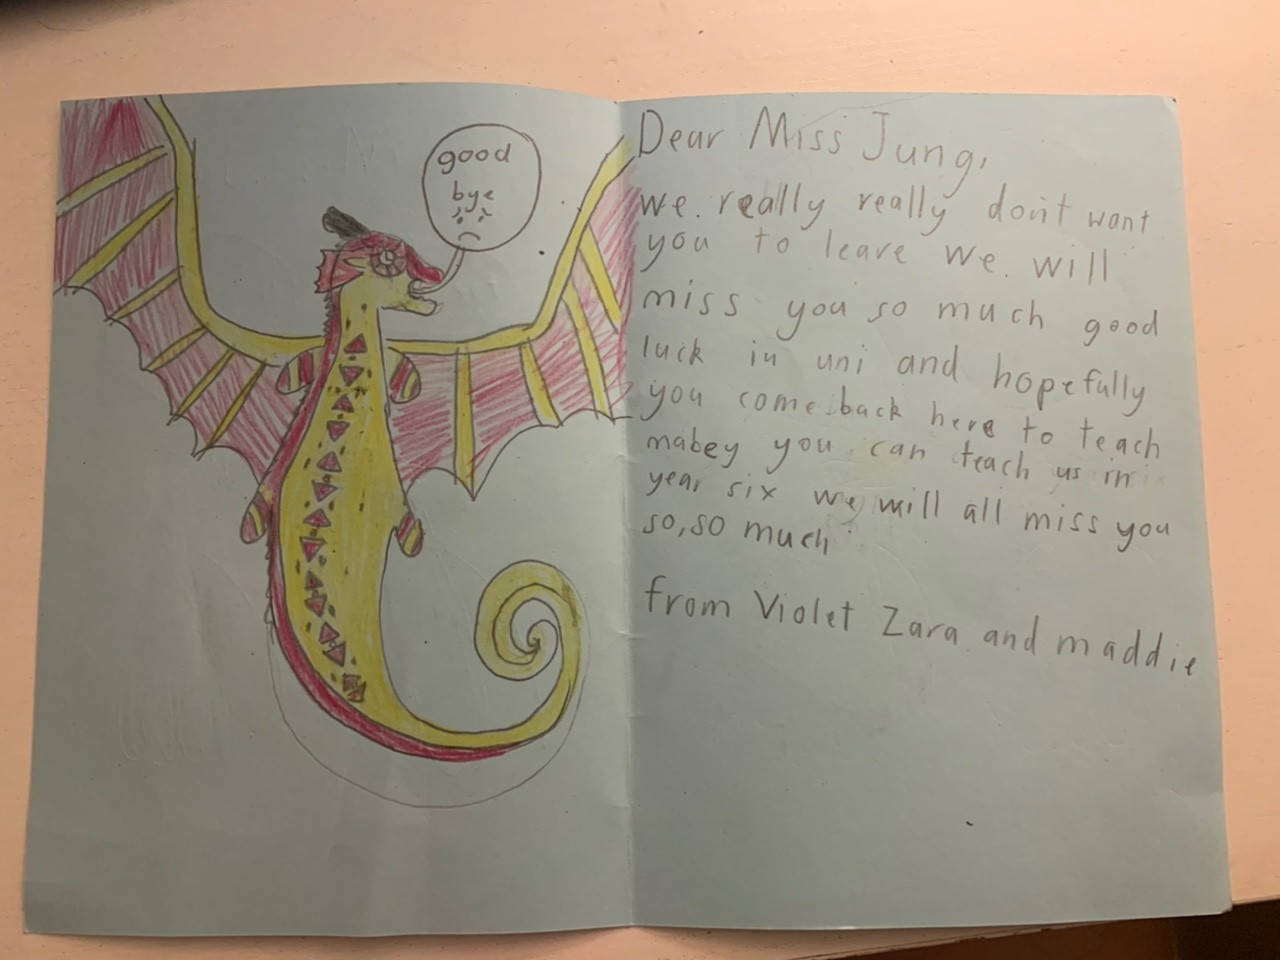 good
bye
Dear Miss Jung,
we really really don't want
you to leave we will
miss you so much good
luck in uni and hopefully
you come back here to teach
mabey you can teach us in
year six we will all miss you
so, so much
from Violet Zara and maddie